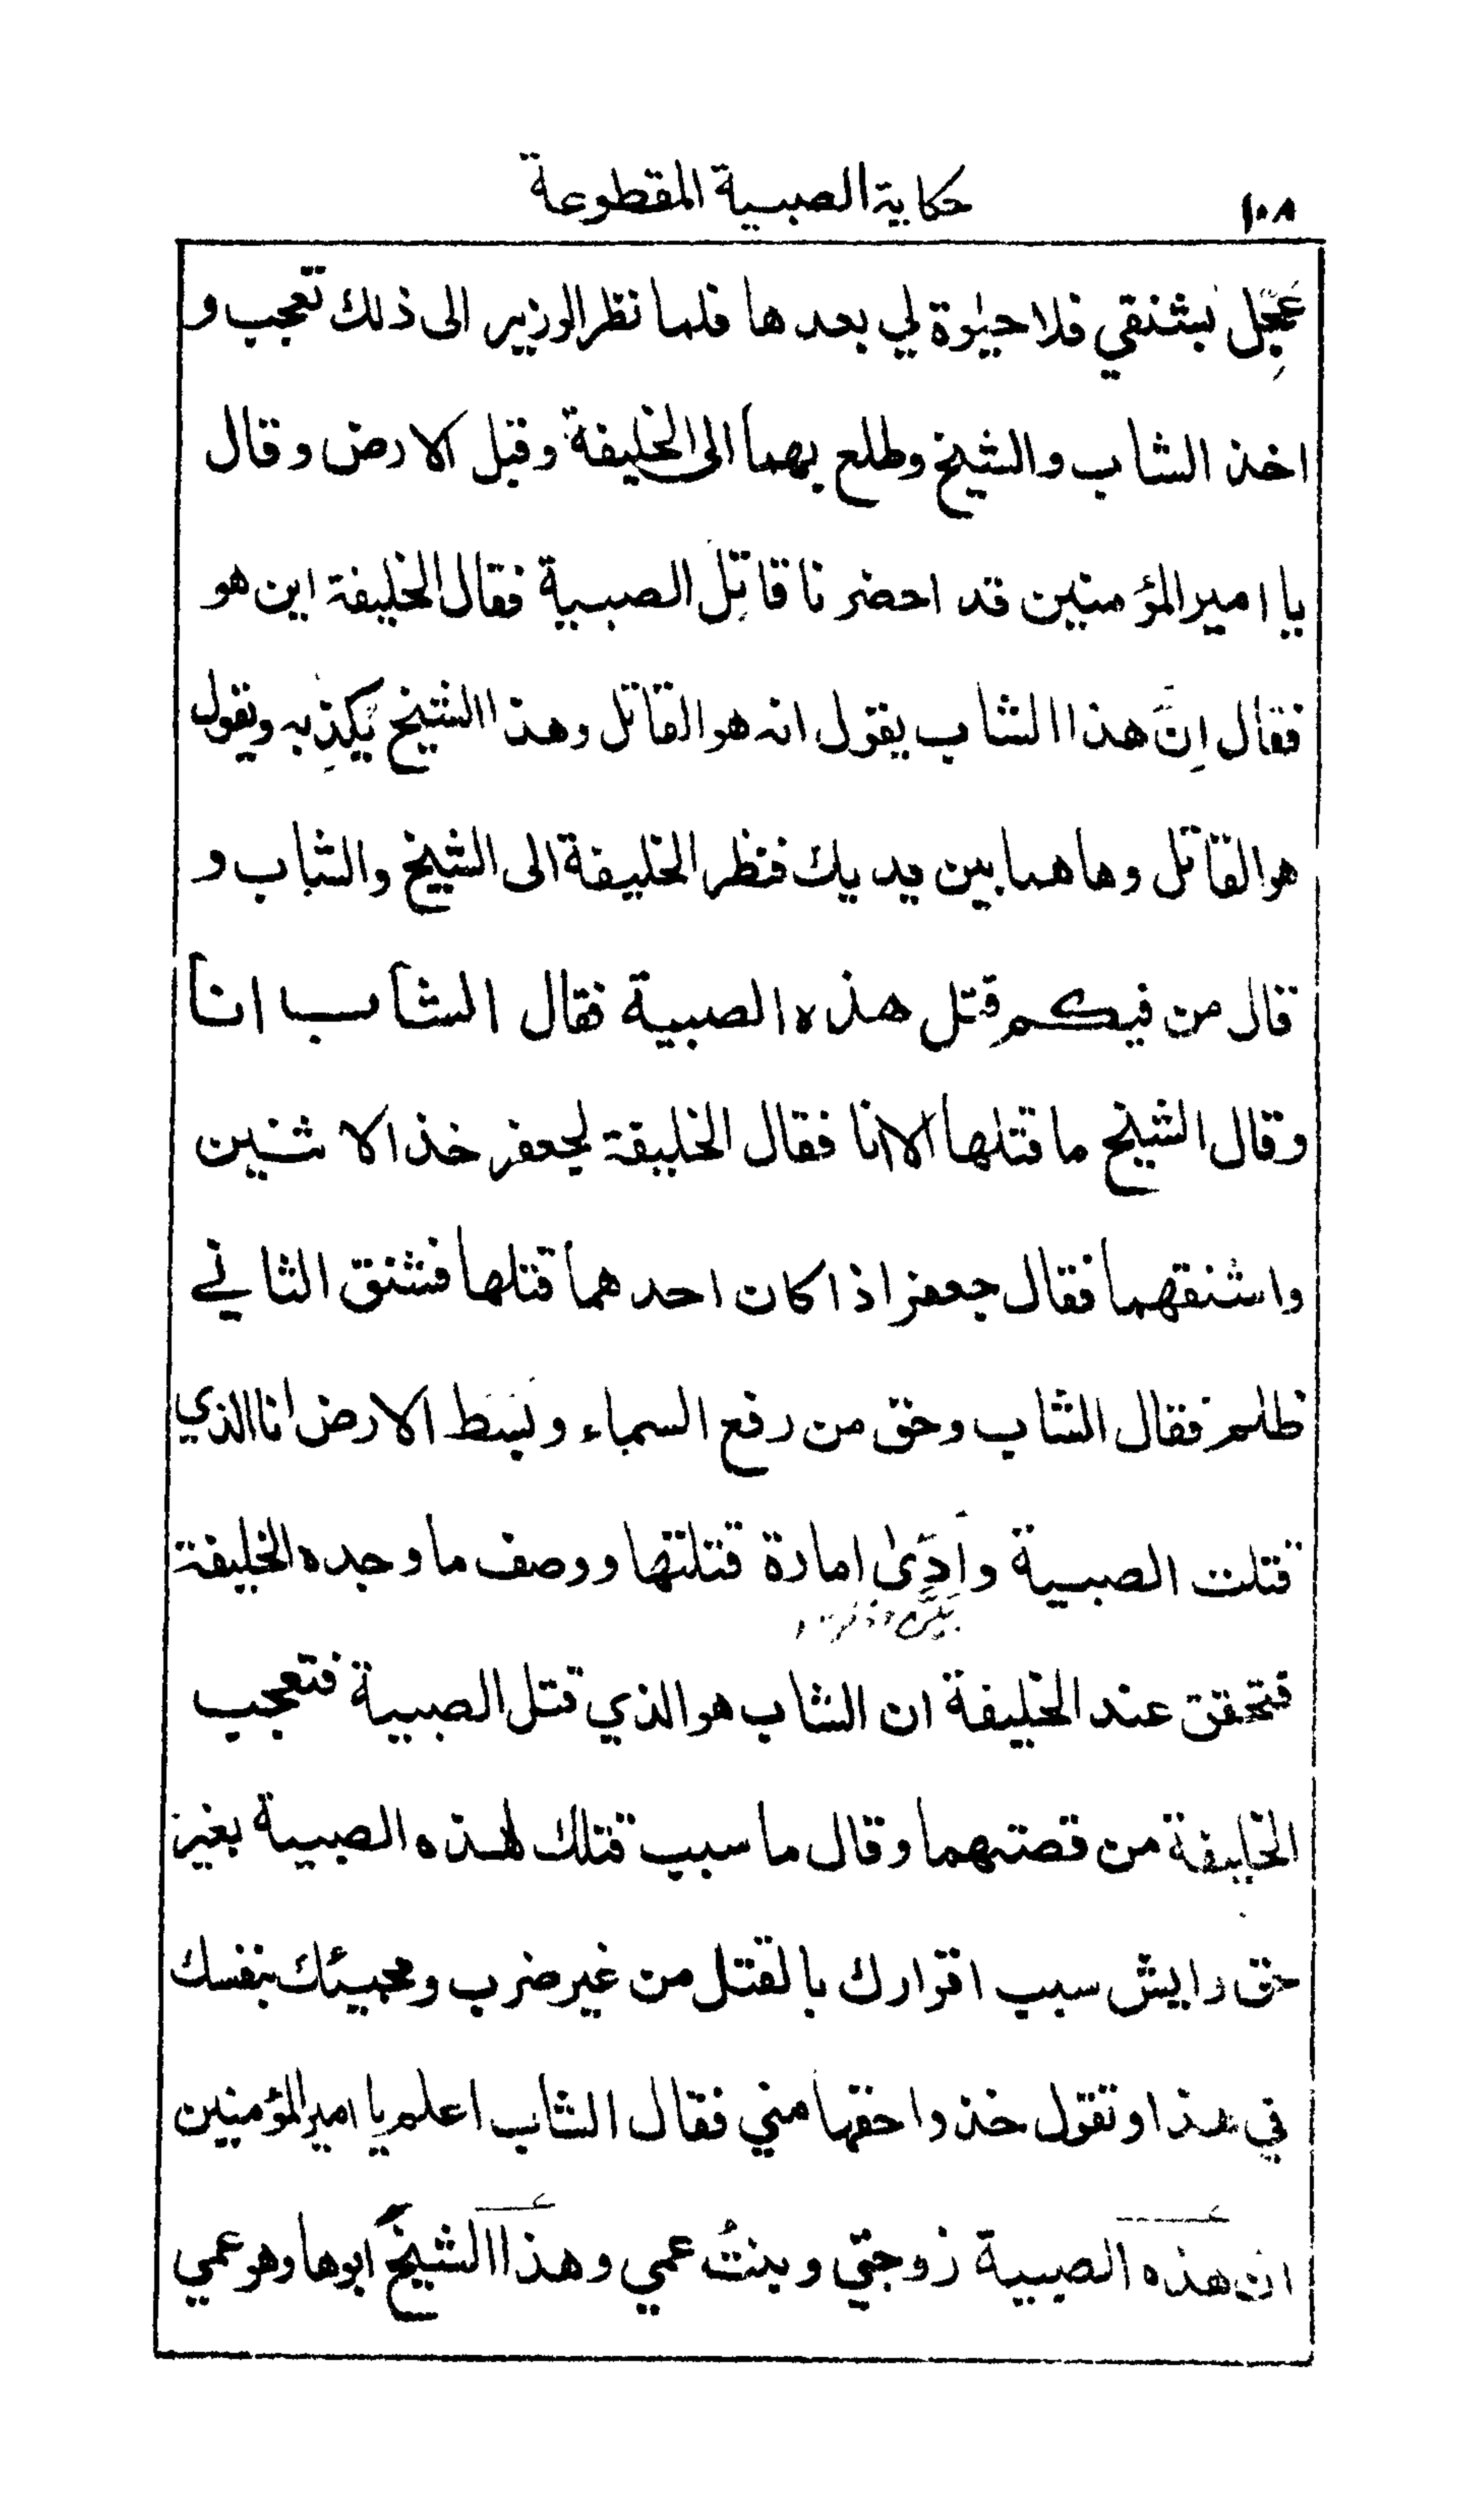 ١٠٨ حكاية الصبية المقطوعة
عَجِّل بشنقي فلا حيٰوة لي بعدها فلما نظر الوزير الى ذلك تعجب و
اخذ الشاب والشيخ وطلع بهما الى الخليفة وقبل الارض وقال
يا امير المؤمنين قد احضرنا قاتِل الصبية فقال الخليفة اين هو
فقال اِنَّ هذا الشاب يقول انه هو القاتل وهذا الشيخ يُكَذِّبه ويقول
هو القاتل وها هما بين يديك فنظر الخليفة الى الشيخ والشاب و
قال من فيكم قتل هذه الصبية فقال الشاب انا
وقال الشيخ ما قتلها الا انا فقال الخليفة لجعفر خذ الاثنين
واشنقهما فقال جعفر اذا كان احدهما قتلها فشنق الثاني
ظلم فقال الشاب وحق من رفع السماء وبَسَط الارض انا الذي
قتلت الصبية واَدَّىٰ امارة قتلتها ووصف ما وجده الخليفة
فتحقق عند الخليفة ان الشاب هو الذي قتل الصبية فتعجب
الخليفة من قصتهما وقال ما سبب قتلك لهذه الصبية بغير
حق وايش سبب اقرارك بالقتل من غير ضرب ومجيئك بنفسك
في هذا وتقول خذوا حقها مني فقال الشاب اعلم يا امير المؤمنين
ان هذه الصبية زوجتي وبنتُ عمي وهذا الشيخ ابوها وهو عمي